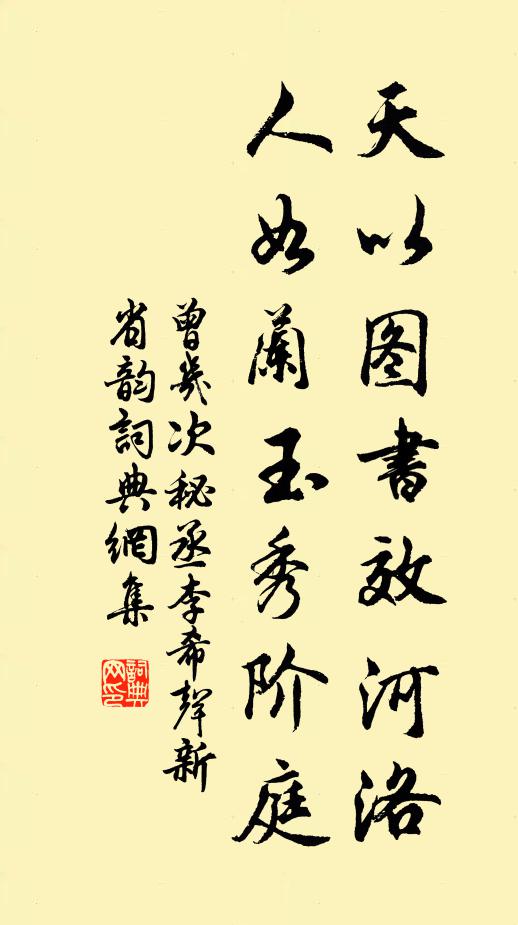 天以图書效河洛
人如蘭玉秀阶庭
曾幾次秘丞李希聲新
省韵詞典網集
詞典
网印